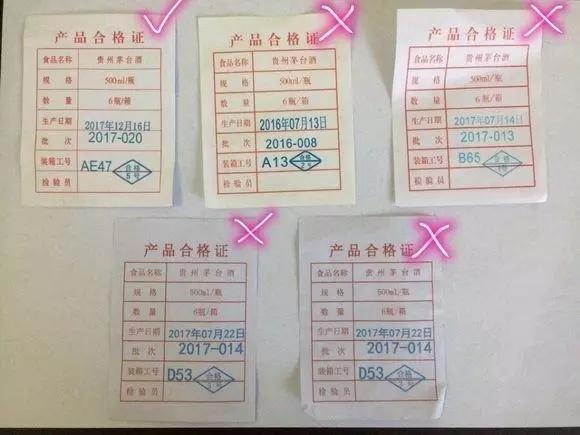 产品合格证
食品名称 贵州茅台酒
规格 500ml/瓶
数量 6瓶/箱
生产日期 2017年12月16日
批次 2017-020
装箱工号 AE47 合格 5号
检验员
产品合格证
食品名称 贵州茅台酒
规格 500ml/瓶
数量 6瓶/箱
生产日期 2016年07月13日
批次 2016-008
装箱工号 A13 合格
检验员
产品合格证
食品名称 贵州茅台酒
规格 500ml/瓶
数量 6瓶/箱
生产日期 2017年07月14日
批次 2017-013
装箱工号 B65 合格
检验员
产品合格证
食品名称 贵州茅台酒
规格 500ml/瓶
数量 6瓶/箱
生产日期 2017年07月22日
批次 2017-014
装箱工号 D53 合格
检验员
产品合格证
食品名称 贵州茅台酒
规格 500ml/瓶
数量 6瓶/箱
生产日期 2017年07月22日
批次 2017-014
装箱工号 D53 合格
检验员